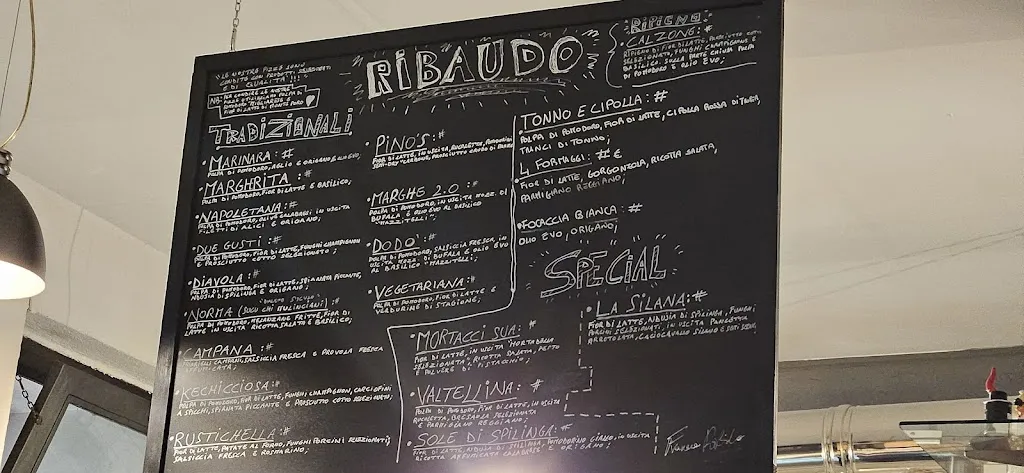 RIBAUDO
"LE NOSTRE PIZZE SONO
CONDITE CON PRODOTTI SELEZIONATI
E DI QUALITÀ!!!"
NB: PER CONDIRE LE NOSTRE
FIOR DI LATTE DI MONTE PORO
TRADIZIONALI
• MARINARA: #
POLPA DI POMODORO, AGLIO E ORIGANO, OLIO EVO;
• MARGHRITA: #
POLPA DI POMODORO, FIOR DI LATTE E BASILICO;
• NAPOLETANA: #
POLPA DI POMODORO, OLIVE CALABRESI IN USCITA
FILETTI DI ALICI E ORIGANO;
• DUE GUSTI: #
POLPA DI POMODORO, FIOR DI LATTE, FUNGHI CHAMPIGNON
E PROSCIUTTO COTTO SELEZIONATO;
• DIAVOLA: #
POLPA DI POMODORO, FIOR DI LATTE, SPIANATA PICCANTE,
NDUJA DI SPILINGA E ORIGANO;
• NORMA (SUCU CHI MULINCIANI): #
POLPA DI POMODORO, MELANZANE FRITTE, FIOR DI
LATTE IN USCITA RICOTTA SALATA E BASILICO;
• CAMPANA: #
SALSICCIA FRESCA E PROVOLA FRESCA
AFFUMICATA;
• KECHICCIOSA: #
POLPA DI POMODORO, FIOR DI LATTE, FUNGHI CHAMPIGNON, CARCIOFINI
A SPICCHI, SPINATA PICCANTE E PROSCIUTTO COTTO SELEZIONATO;
RUSTICHELLA: #
FIOR DI LATTE, PATATE AL FORNO, FUNGHI PORCINI SELEZIONATI,
SALSICCIA FRESCA E ROSMARINO;
• PINO'S: #
FIOR DI LATTE, IN USCITA RUCOLETTA, POMODORINI
SEMI-DRY PROSCIUTTO CRUDO DI PARMA
• MARGHE 2.0
POLPA DI POMODORO, IN USCITA MOZZ. DI
BUFALA E OLIO EVO AL BASILICO
"MAZZITELLI";
• DODO': #
POLPA DI POMODORO, SALSICCIA FRESCA, IN
USCITA MOZZ. DI BUFALA E OLIO EVO
AL BASILICO "MAZZITELLI";
• VEGETARIANA: #
POLPA DI POMODORO, FIOR DI LATTE E
VERDURINE DI STAGIONE;
RIPIENO
• CALZONE: #
RIPIENO DI FIOR DI LATTE, PROSCIUTTO COTTO
SELEZIONATO, FUNGHI CHAMPIGNON E
BASILICO. SULLA PARTE CHIUSA POLPA
DI POMODORO E OLIO EVO;
TONNO E CIPOLLA: #
POLPA DI POMODORO, FIOR DI LATTE, CIPOLLA ROSSA DI TROPEA,
TRANCI DI TONNO;
4 FORMAGGI: #€
FIOR DI LATTE, GORGONZOLA, RICOTTA SALATA,
PARMIGIANO REGGIANO;
• FOCACCIA BIANCA: #
OLIO EVO, ORIGANO;
SPECIAL
• MORTACCI SUA: #
FIOR DI LATTE, IN USCITA "MORTADELLA
SELEZIONATA", RICOTTA SALATA, PESTO
E POLVERE DI "PISTACCHIO";
VALTELLINA: #
POLPA DI POMODORO, FIOR DI LATTE, IN USCITA
RUCHETTA, BRESAOLA SELEZIONATA
E PARMIGIANO REGGIANO;
• SOLE DI SPILINGA: #
FIOR DI LATTE, NDUJA DI SPILINGA, POMODORINO GIALLO, IN USCITA
RICOTTA AFFUMICATA CALABRESE E ORIGANO;
• LA SILANA: #
FIOR DI LATTE, NDUJA DI SPILINGA, FUNGHI
PORCINI SELEZIONATI, IN USCITA PANCETTA
ARROTOLATA, CACIOCAVALLO SILANO E